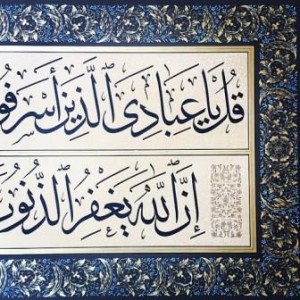 قُلْ يَا عِبَادِيَ ٱلَّذِينَ أَسْرَفُو
إِنَّ ٱللَّهَ يَغْفِرُ ٱلذُّنُوبَ